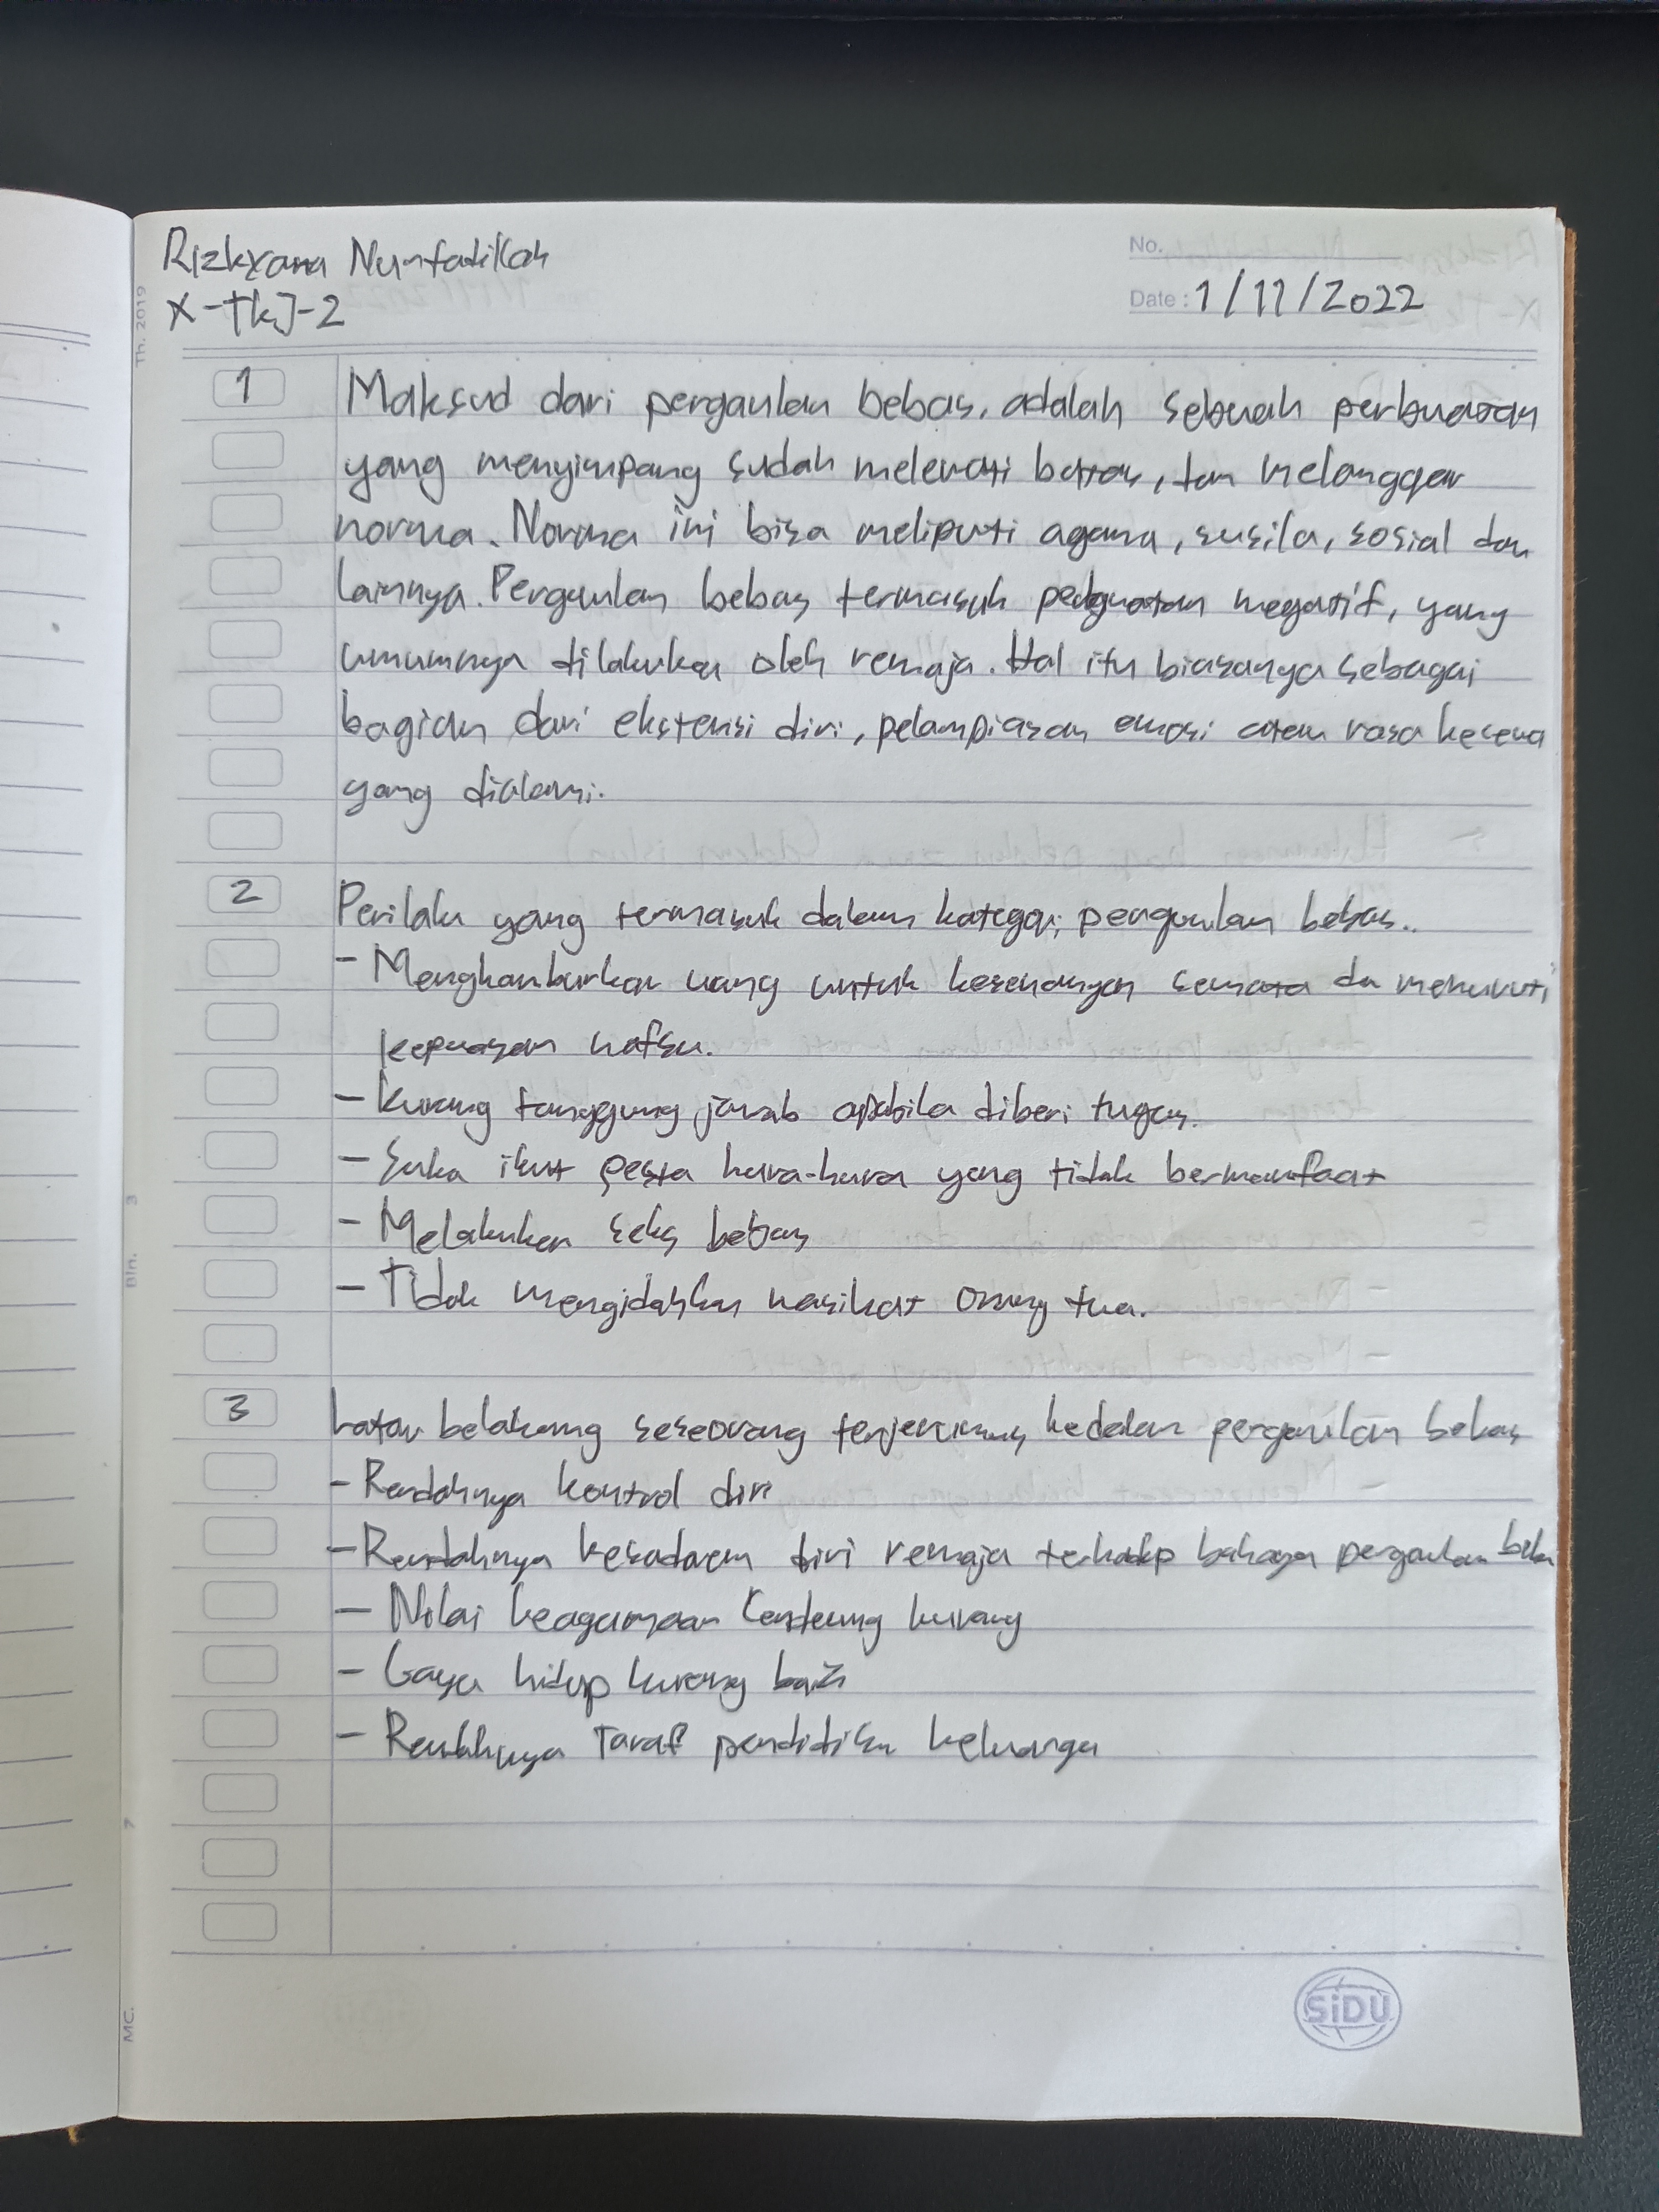 Rizkyana Nurfadillah
X-TKJ-2
No.
Date : 1/11/2022
1 Maksud dari pergaulan bebas, adalah sebuah perbuatan
yang menyimpang sudah melewati batas, dan melanggar
norma. Norma ini bisa meliputi agama, susila, sosial dan
lainnya. Pergaulan bebas termasuk perbuatan negatif, yang
umumnya dilakukan oleh remaja. Hal itu biasanya sebagai
bagian dari ekstensi diri, pelampiasan emosi atau rasa kecewa
yang dialami.
2 Perilaku yang termasuk dalam kategori pergaulan bebas..
- Menghamburkan uang untuk kesenangan semata dan menuruti
kepuasan nafsu.
- Kurang tanggung jawab apabila diberi tugas.
- Suka ikut pesta hura-hura yang tidak bermanfaat
- Melakukan seks bebas
- Tidak mengidahkan nasihat orang tua.
3 Latar belakang seseorang terjerumus kedalam pergaulan bebas
- Rendahnya kontrol diri
- Rendahnya kesadaran diri remaja terhadap bahaya pergaulan bebas
- Nilai keagamaan cenderung kurang
- Gaya hidup kurang baik
- Rendahnya Taraf pendidikan keluarga
SiDU
Th. 2019
Bln. 3
7
MC.